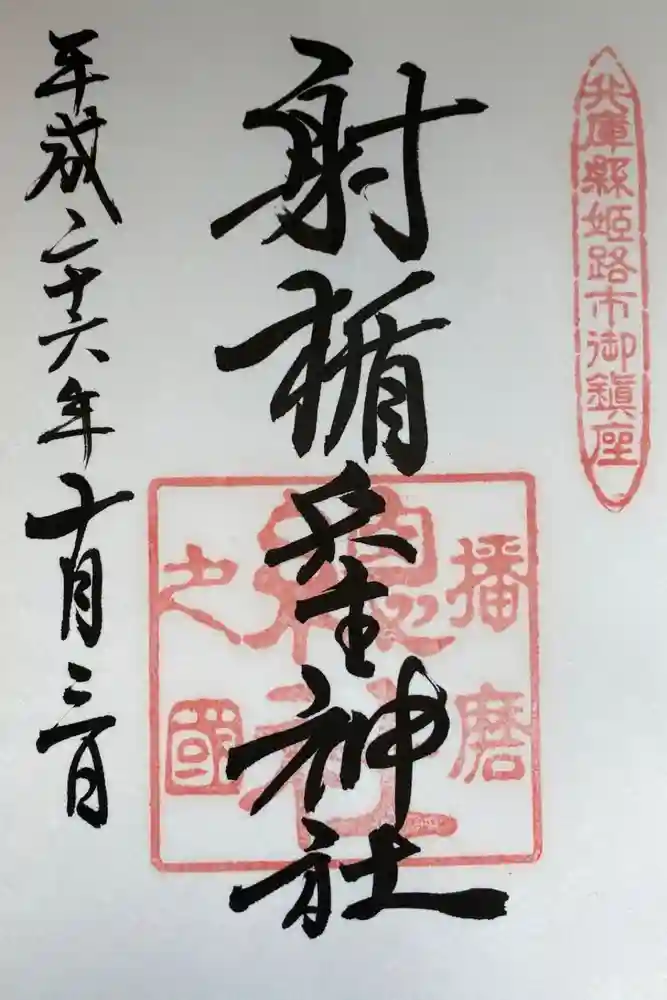 兵庫縣姫路市御鎮座
射楯兵主神社
播磨
之國
總社
平成二十六年十月三日